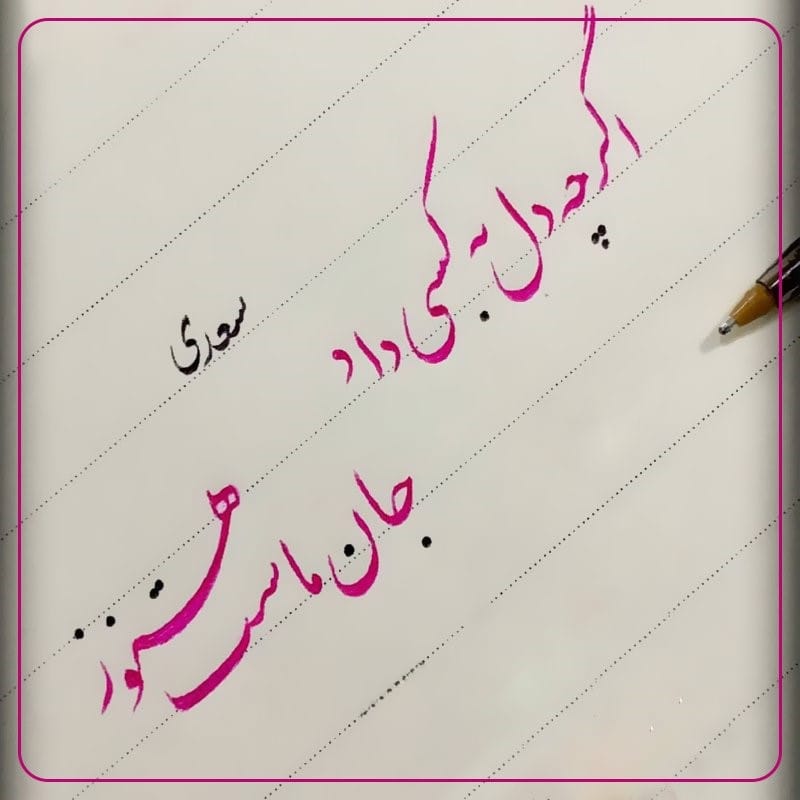 اگرچه دل به کسی داد
جان ماست هنوز
سعدی